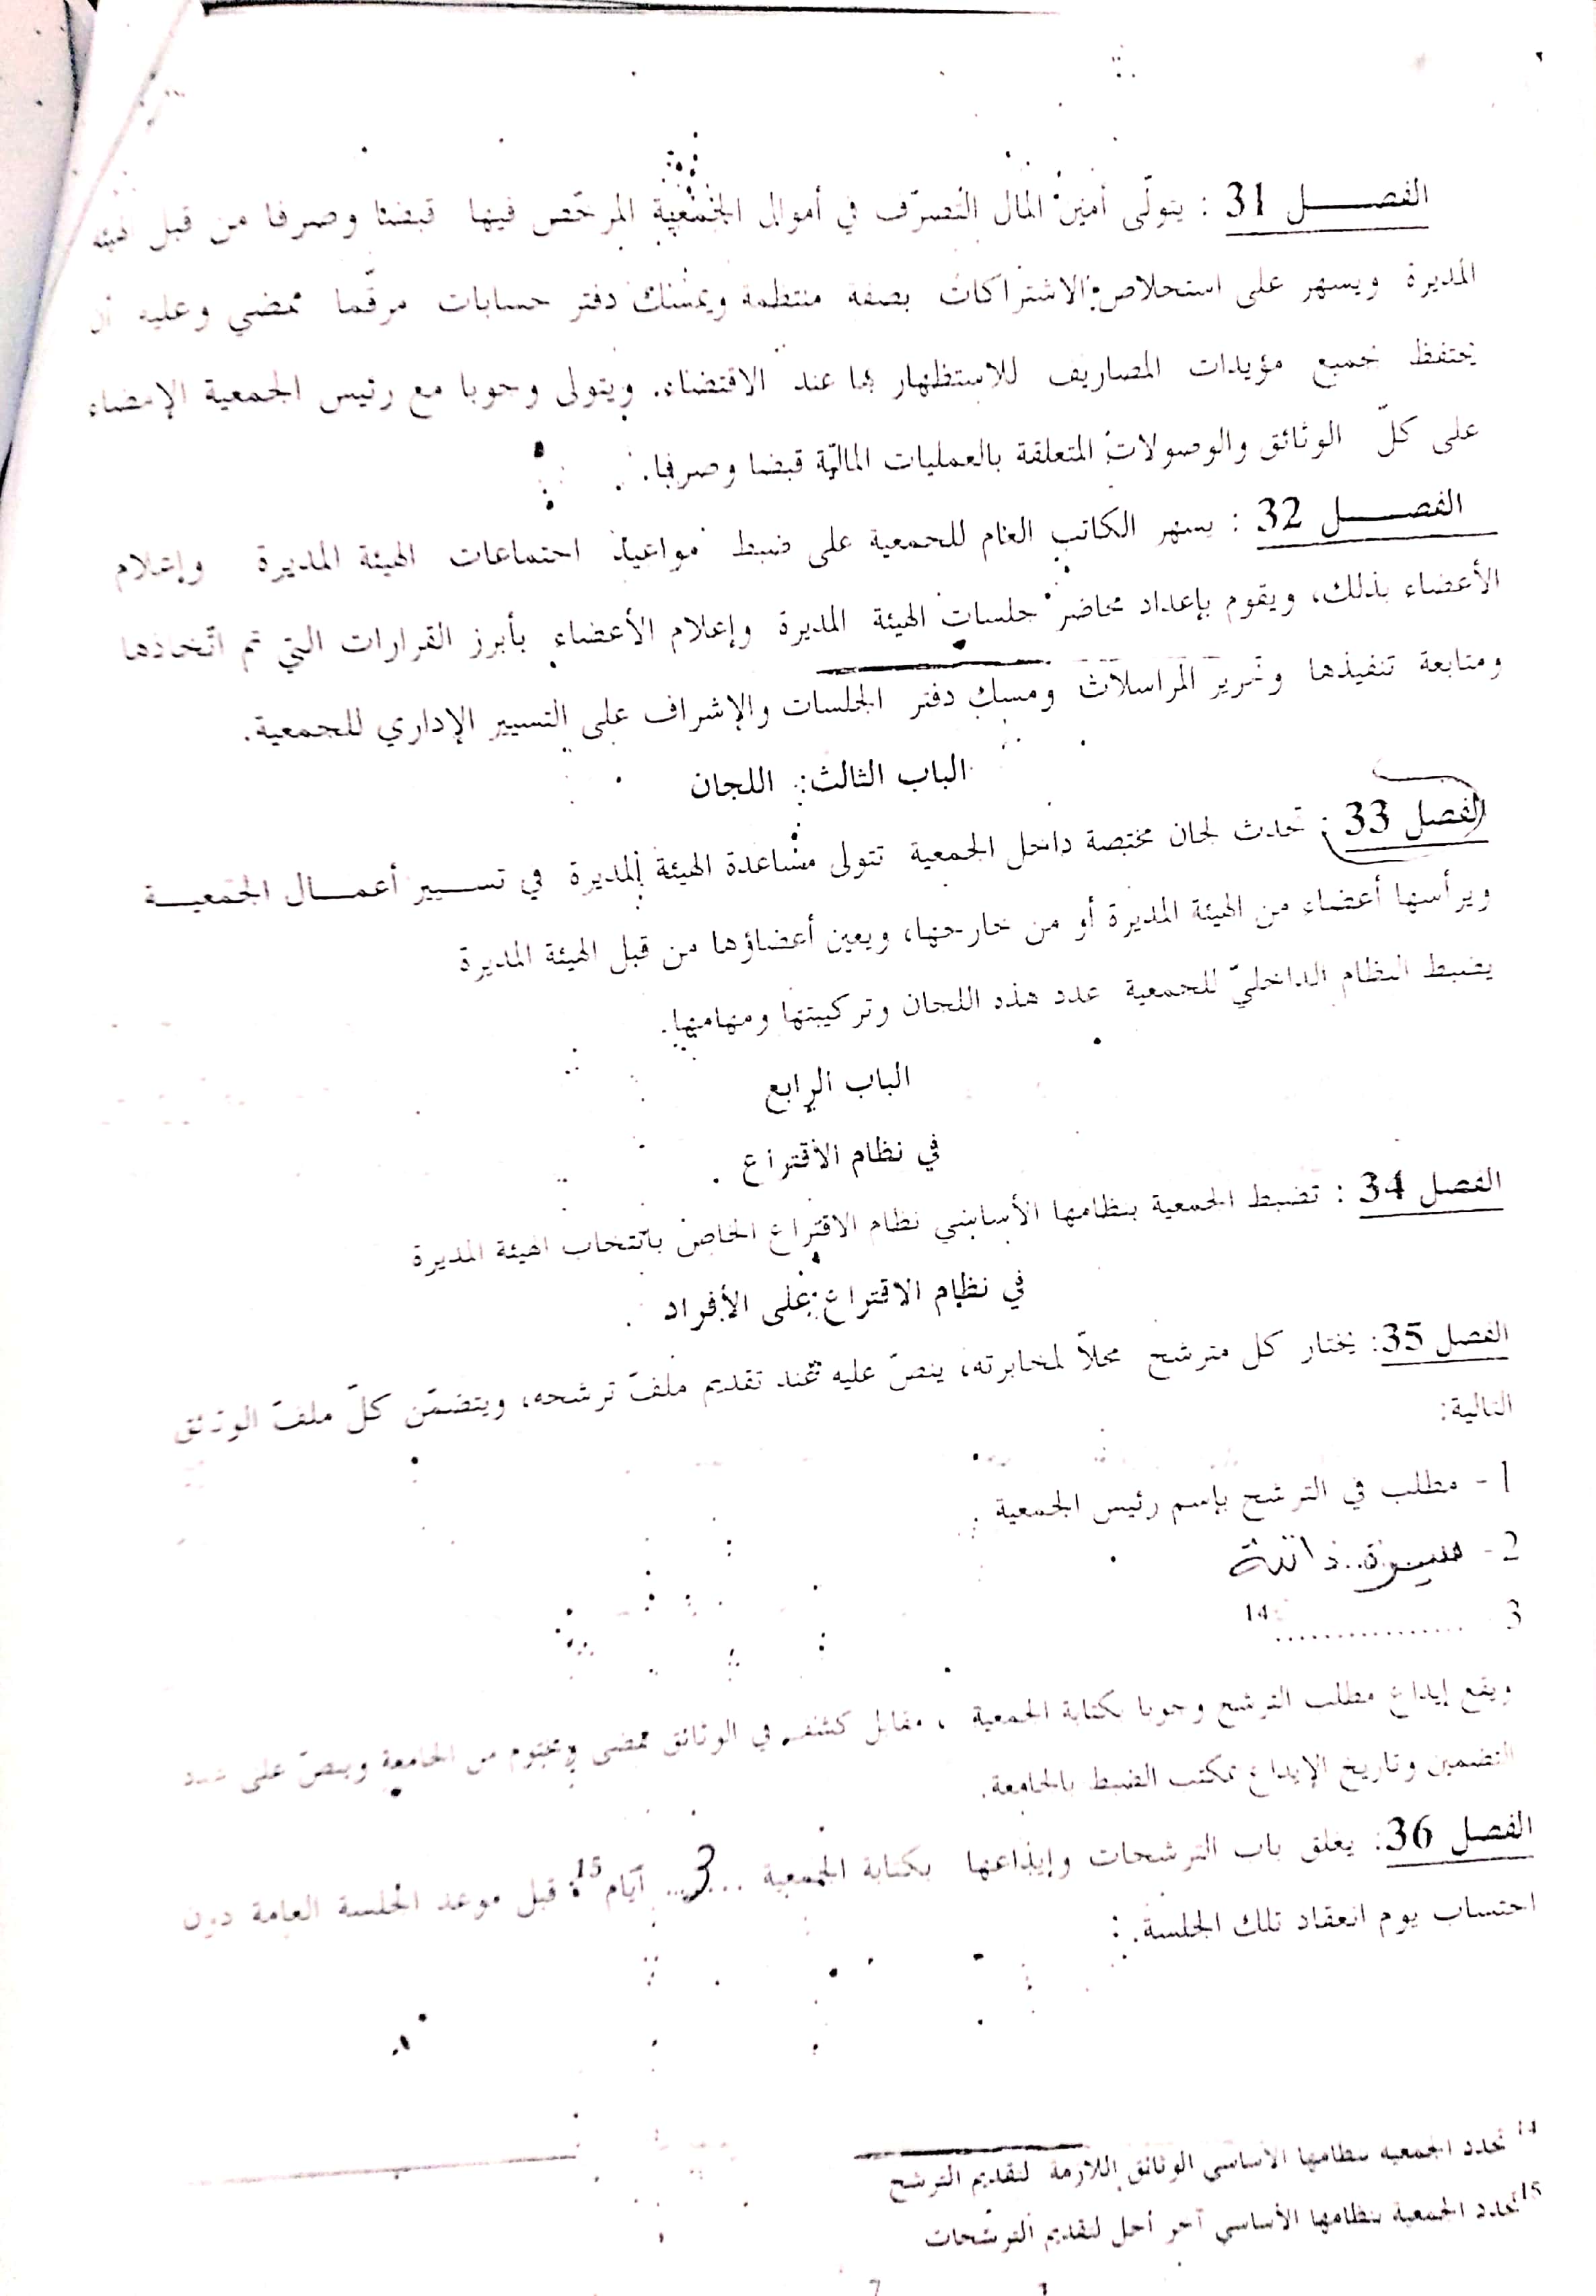 الفصـــــل 31 : يتولّى أمين المال التصرّف في أموال الجمعية المرخّص فيها قبضا وصرفا من قبل الهيئة
المديرة ويسهر على استخلاص الاشتراكات بصفة منتظمة ويمسك دفتر حسابات مرقّما ممضي وعليه أن
يحتفظ بجميع مؤيدات المصاريف للاستظهار بها عند الاقتضاء. ويتولى وجوبا مع رئيس الجمعية الإمضاء
على كلّ الوثائق والوصولات المتعلقة بالعمليات الماليّة قبضا وصرفا.
الفصـــــل 32 : يسهر الكاتب العام للجمعية على ضبط مواعيد اجتماعات الهيئة المديرة وإعلام
الأعضاء بذلك، ويقوم بإعداد محاضر جلسات الهيئة المديرة وإعلام الأعضاء بأبرز القرارات التي تم اتّخاذها
ومتابعة تنفيذها وتحرير المراسلات ومسك دفتر الجلسات والإشراف على التسيير الإداري للجمعية.
الباب الثالث: اللجان
الفصل 33 : تحدث لجان مختصة داخل الجمعية تتولى مساعدة الهيئة المديرة في تســـيير أعمـــال الجمعيـــة
ويرأسها أعضاء من الهيئة المديرة أو من خارجها، ويعين أعضاؤها من قبل الهيئة المديرة
يضبط النظام الداخليّ للجمعية عدد هذه اللجان وتركيبتها ومهامها.
الباب الرابع
في نظام الاقتراع
الفصل 34 : تضبط الجمعية بنظامها الأساسي نظام الاقتراع الخاص بانتخاب الهيئة المديرة
في نظام الاقتراع على الأفراد
الفصل 35: يختار كل مترشح محلاّ لمخابرته، ينصّ عليه عند تقديم ملفّ ترشحه، ويتضمّن كلّ ملفّ الوثائق
التالية:
1- مطلب في الترشح بإسم رئيس الجمعية .
2- سيرة ذاتية
3 ................14
ويقع إيداع مطلب الترشح وجوبا بكتابة الجمعية ، مقابل كشف في الوثائق ممضى ومختوم من الجامعة وينصّ على عدد
التضمين وتاريخ الإيداع بمكتب الضبط بالجامعة.
الفصل 36: يغلق باب الترشحات وإيداعها بكتابة الجمعية ...3... أيّام15 قبل موعد الجلسة العامة دون
احتساب يوم انعقاد تلك الجلسة.
14 تحدد الجمعية بنظامها الأساسي الوثائق اللازمة لتقديم الترشح
15 تحدد الجمعية بنظامها الأساسي آخر أجل لتقديم الترشحات
7